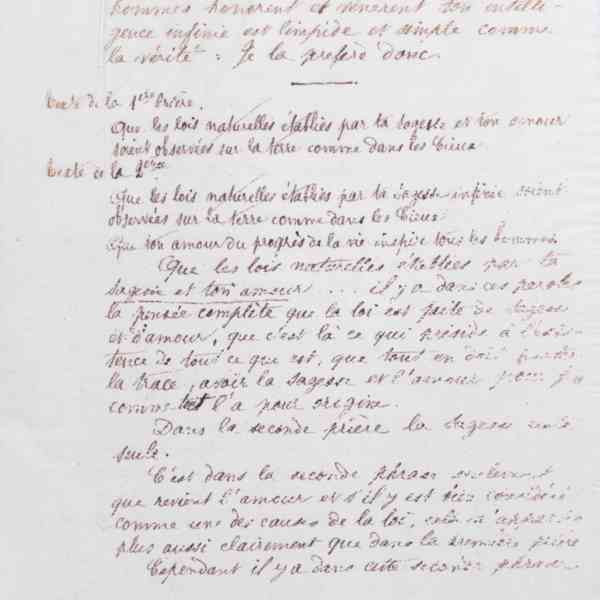 hommes honorent et vénèrent ton intelli-
gence infinie est limpide et simple comme
la vérité : Je la préfère donc.
Texte de la 1ère Prière.
Que les lois naturelles établies par ta sagesse et ton amour
soient observées sur la terre comme dans les Cieux
Texte de la 2ème
Que les lois naturelles établies par ta sagesse infinie soient
observées sur la terre comme dans les Cieux
Que ton amour du progrès de la vie inspire tous les hommes
Que les lois naturelles établies par ta
sagesse et ton amour ... il y a dans ces paroles
la pensée complète que la loi est faite de sagesse
et d'amour, que c'est là ce qui préside à l'exis-
tence de tout ce que est, que tout en doit
la trace, avoir la sagesse et l'amour pour
comme tout l'a pour origine.
Dans la seconde prière la sagesse reste
seule.
C'est dans la seconde phrase seulement
que revient l'amour et s'il y est bien considéré
comme une des causes de la loi, cela n'apparaît
plus aussi clairement que dans la première prière
Cependant il y a dans cette seconde phrase